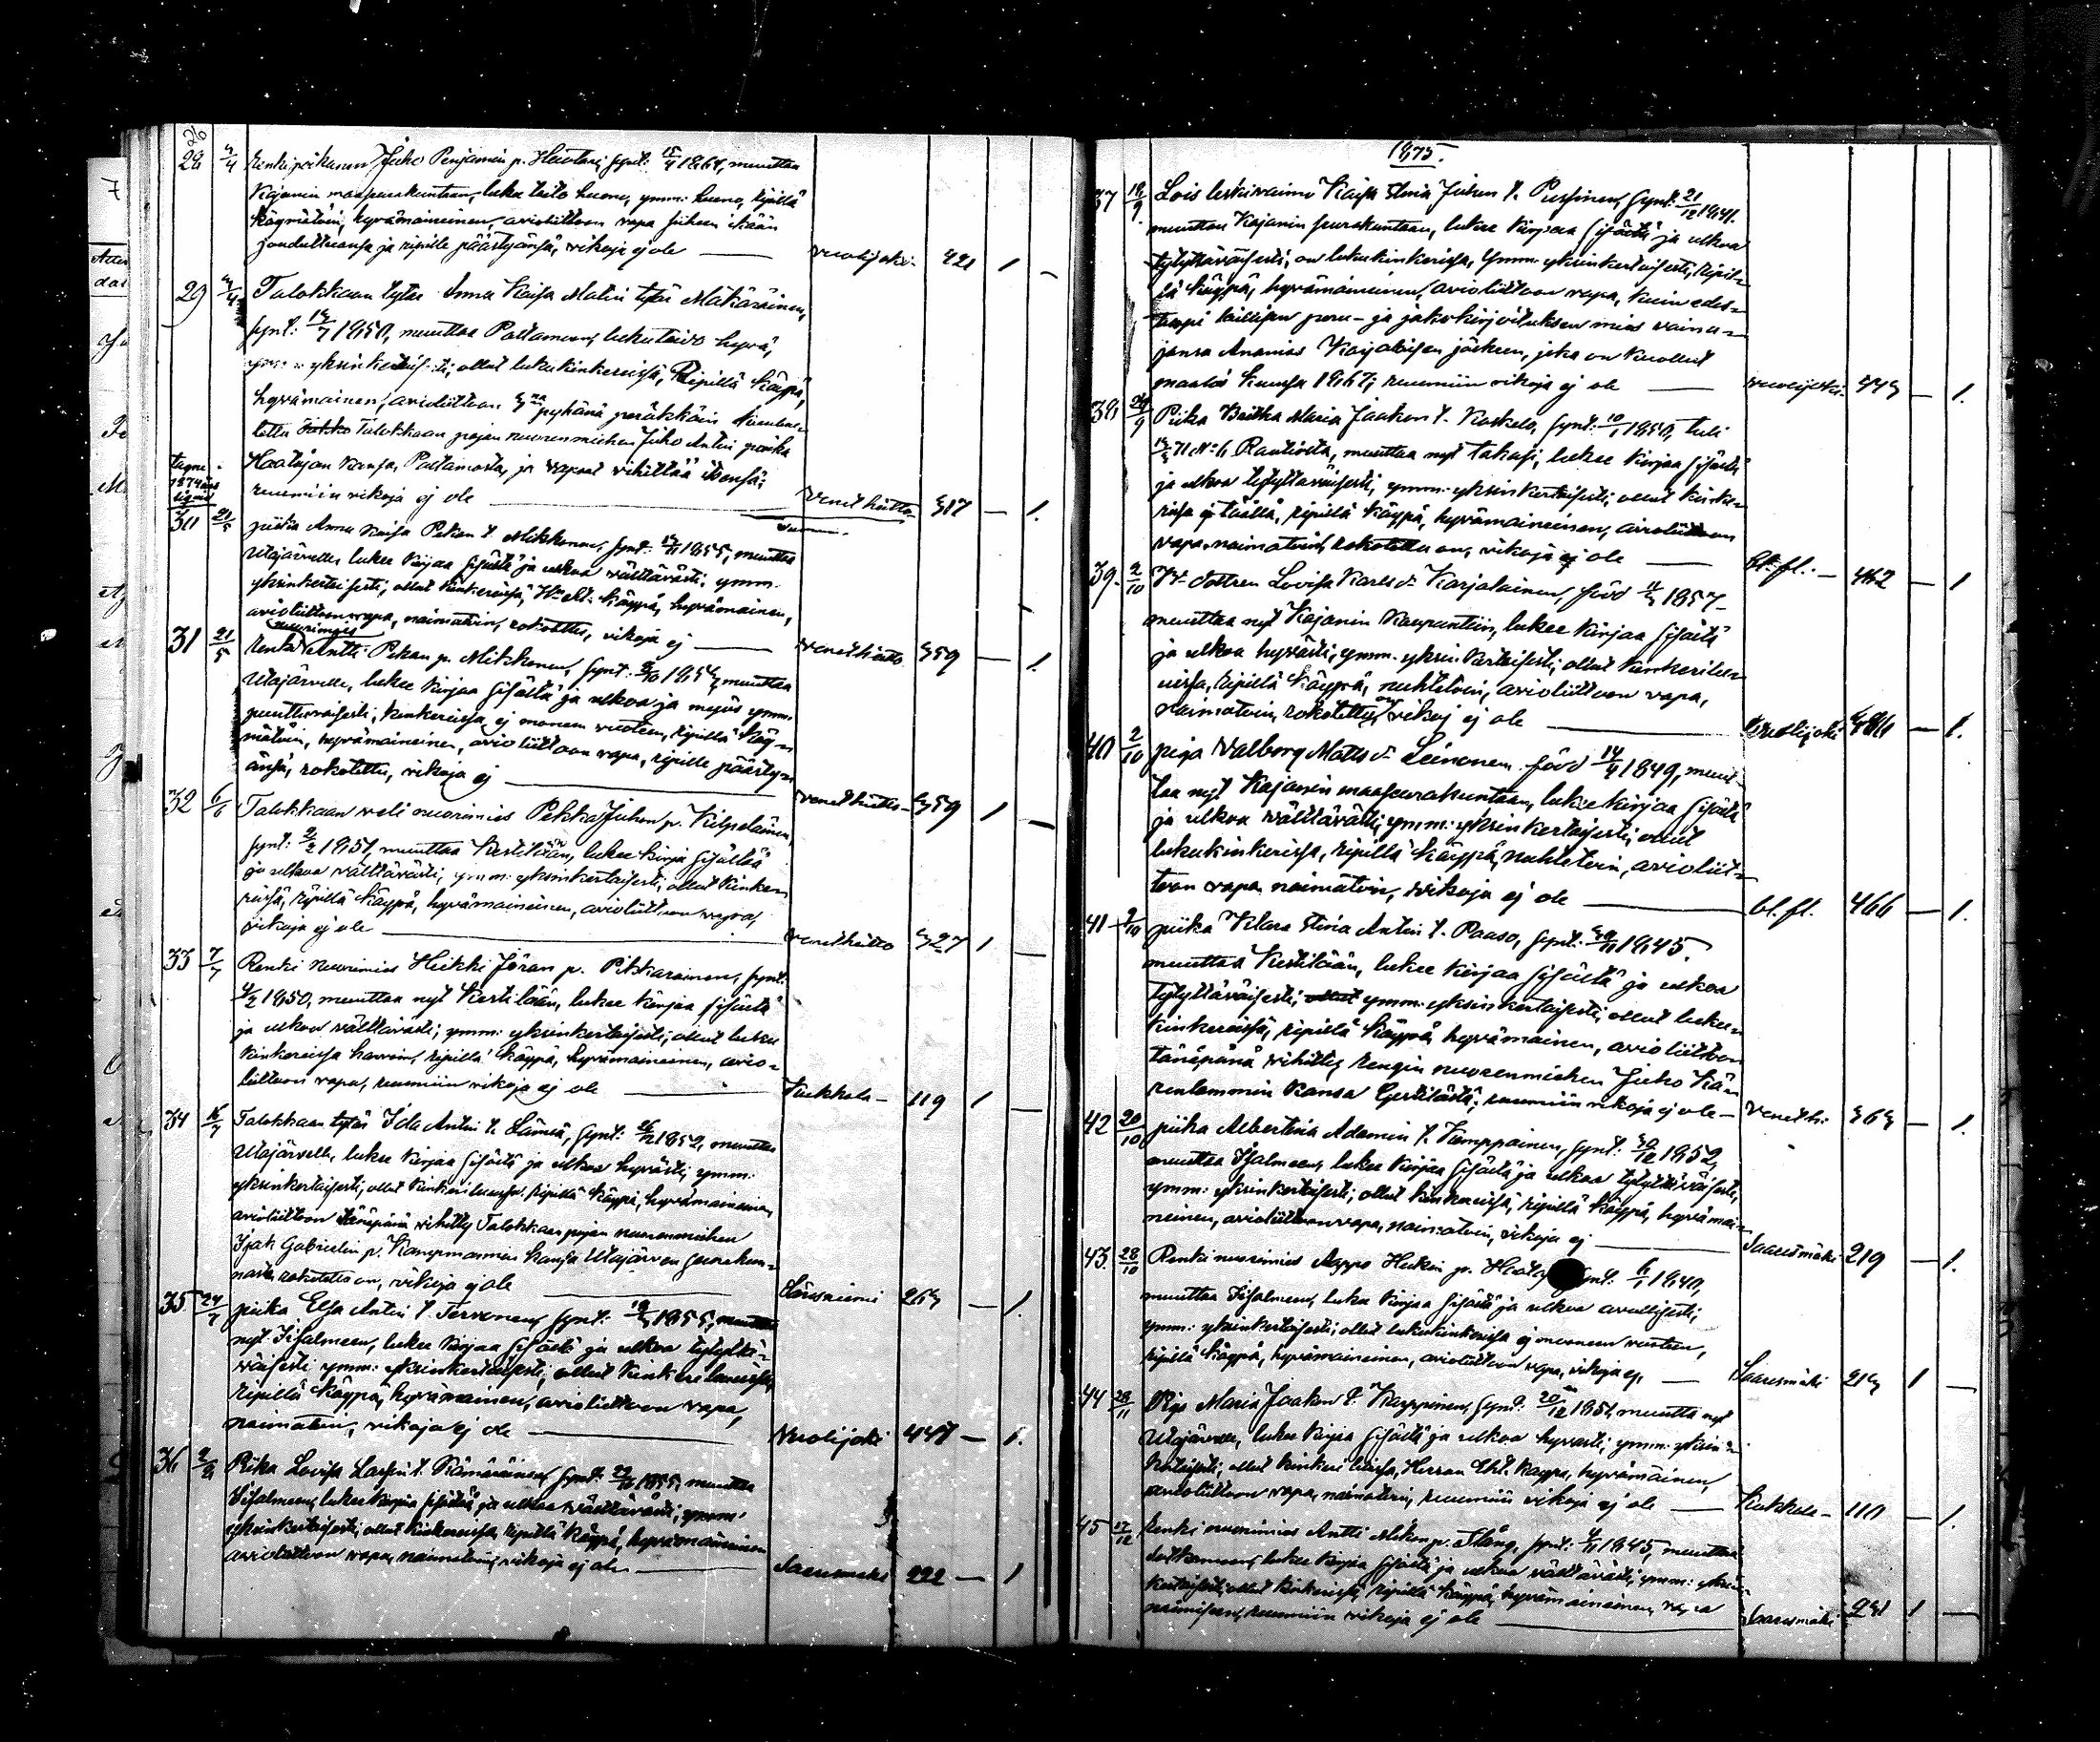 26
28 4/4 Renkipoikanen Juho Penjamin p. Huotari, synt: 15/4 1864, muuttaa
Kajanin maaseurakuntaan, luku taito huono, ymm: huono, ripillä
käymätöin, hyvämaineinen, avioliittoon vapa siihen ikään
jouduttuansa ja ripille päästyänsä, vikoja ej ole — Vuolijoki 421 1 —
29 4/4 Talokkaan tytär Anna Kaisa Matin tytär Mäkäräinen,
synt: 1850, muuttaa Paltamoon, lukutaito hyvä,
yksinkertaisesti, ollut lukukinkereissä, Ripillä käypä,
hyvämainen, avioliittoon 3na pyhänä peräkkäin kuulus-
tettu Talokkaan pojan nuorenmiehen Juho Antin poika
Haatajan kansa, Paltamosta, ja vapaat vihittää itsensä;
ruumiin vikoja ej ole — Veneth:itto 317 — 1.
30 21/5 piika Anna Kaisa Pekan t. Mikkonen, synt: 1855, muuttaa
Utajärvelle, lukee kirjaa sisältä ja ulkoa välttävästi, ymm.
yksinkertaisesti, ollut kinkereissä, käypä, hyvämainen,
avioliittoon vapa, naimatoin, rokotettu, vikoja ej — Venethitto 359 — 1.
nuorimies
31 21/5 Renki Antti Pekan p. Mikkonen, synt: muuttaa
Utajärvelle, lukee kirjaa sisältä ja ulkoa ja myös ymm.
puuttuvaisesti, kinkereissä ej moneen vuoteen, ripillä käy-
mätöin, hyvämaineinen, avioliittoon vapa, ripille päästy-
änsä, rokotettu, vikoja ej — Venethitto 359 1 —
32 6/6 Talokkaan veli nuorimies Pekka Juhon p. Kilpeläinen,
synt: 1851, muuttaa Kestilään, lukee kirja sisältää
ja ulkoa välttävästi, ymm: yksinkertaisesti, ollut kinke-
rissä, ripillä käypä, hyvämaineinen, avioliittoon vapa,
vikoja ej ole — Venethitto 327 1 —
33 7/7 Renki nuorimies Heikki Jöran p. Pikkarainen, synt:
1850, muuttaa nyt Kestilään, lukee kirjaa sisältä
ja ulkoa välttävästi, ymm: yksinkertaisesti, ollut luku
kinkereissä harvoin, ripillä käypä, hyvämaineinen, avio-
liittoon vapa, ruumiin vikoja ej ole — Kukkola — 119 1 —
34 Talokkaan tytär Ida Antin t. synt: muuttaa
Utajärvelle, lukee kirjaa sisältä ja ulkoa hyvästi, ymm:
yksinkertaisesti, ollut kinkeriluvussa, ripillä käypä, hyvämaineinen,
avioliittoon tänäpänä vihitty Talokkaan pojan nuorenmiehen
Isak Gabrielin p. kansa Utajärven seurakun-
nasta, rokotettu on, vikoja ej ole — Säresniemi 263 — 1.
35 24/7 piika Elsa Antin t. Tervonen, synt: 1855, muuttaa
nyt Iisalmeen, lukee kirjaa sisältä ja ulkoa tytyttä-
väisesti ymm: yksinkertaisesti, ollut kinkeriluvuissa,
ripillä käypä, hyvämainen, avioliittoon vapa,
naimatoin, vikoja ej ole — Vuolijoki 447 — 1.
36 Piika Lovisa Lassin t. Kämäräinen, synt: 1855, muuttaa
Iisalmeen, lukee kirjaa sisältä ja ulkoa välttävästi, ymm:
yksinkertaisesti, ollut kinkereissä, ripillä käypä, hyvämaineinen
avioliittoon vapa, naimatoin, vikoja ej ole — Saaresmäki 222 — 1
1875.
37 18/9 Lois leskivaimo Kaisa Stina Juhon t. Pussinen, synt: 21/12 1841.
muuttaa Kajanin seurakuntaan, lukee kirjaa sisältä ja ulkoa
tytyttäväisesti, on lukukinkerissä, ymm: yksinkertaisesti, ripil-
lä käypä, hyvämaineinen, avioliittoon vapa, kuin edes-
tuopi laillisen peru- ja jakokirjoituksen mies vaina-
jansa Ananias Karjalaisen jälkeen, joka on kuollut
maalis kuussa 1867; ruumiin vikoja ej ole — Vuolijoki 443 — 1.
38 24/9 Piika Britha Maria Jaakon t. Koskelo, synt: 10/1 1850, tuli
71 No 6 Rautiosta, muuttaa nyt takasi, lukee kirjaa sisältä
ja ulkoa tytyttäväisesti, ymm: yksinkertaisesti, ollut kinke-
rissä ej täällä, ripillä käypä, hyvämaineinen, avioliittoon
vapa naimatoin, rokotettu on, vikoja ej ole — bl. fl. — 462 — 1
39. 2/10 Lovisa Karls dr Karjalainen, född 1857
muuttaa nyt Kajanin Kaupuntiin, lukee kirjaa sisältä
ja ulkoa hyvästi, ymm: yksinkertaisesti, ollut kinkerilu-
vuissa, ripillä käypä, nuhtetoin, avioliittoon vapa,
naimatoin, rokotettu on, vikoj ej ole — Vuolijoki 486 — 1.
40 2/10 piga Valborg Matts dr Leinonen född 14/4 1849, muut-
taa nyt Kajanin maaseurakuntaan, lukee kirjaa sisältä
ja ulkoa välttävästi, ymm: yksinkertaisesti, ollut
lukukinkerissä, ripillä käypä, nuhtetoin, avioliit-
toon vapa naimatoin, vikoja ej ole — bl. fl. 466 — 1.
41 piika Klara Stina Antin t. Paaso, synt: 1845.
muuttaa Kestilään, lukee kirjaa sisältä ja ulkoa
tytyttäväisesti, ollut ymm: yksinkertaisesti, ollut luku-
kinkereissä, ripillä käypä, hyvämainen, avioliittoon
tänäpänä vihitty rengin nuorenmiehen Juho Kä-
renlammin kansa Kestilästä; ruumiin vikoja ej ole — Veneth: 363 — 1.
42 20/10 piika Albertina Adamin t. Kemppainen, synt: 1852,
muuttaa Iisalmeen, lukee kirjaa sisältä ja ulkoa tytyttäväisesti,
ymm: yksinkertaisesti, ollut kinkereissä, ripillä käypä, hyvämai-
neinen, avioliittoon vapa, naimatoin, vikoja ej — Saaresmäki 219 — 1.
43. 28/10 Renki nuorimies Aappo Heikin p. synt: 6/1 1840,
muuttaa Iisalmeen, lukee kirjaa sisältä ja ulkoa avullisesti,
ymm: yksinkertaisesti, ollut lukukinkereissä ej moneen vuoteen,
ripillä käypä, hyvämaineinen, avioliittoon vapa, vikoja ej, — Saaresmäki 1 —
44 Piga Maria Jaakon t. Karppinen, synt: 20/12 1851, muutta nyt
Utajärvelle, lukee kirjaa sisältä ja ulkoa hyvästi, ymm: yksin-
kertaisesti, ollut kinkeri luissa, Herran Eht. käypä, hyvämäinen,
avioliittoon vapa, naimatoin, ruumiin vikoja ej ole — Kukkola — 110 — 1.
45 17/12 Renki nuorimies Antti Mikon p. synt: 1845, muuttaa
Sotkamoon, lukee kirjaa sisältä ja ulkoa välttävästi, ymm: yksin-
kertaisesti, ollut kinkerissä, ripillä käypä, hyvämaineinen, vapa
naimiseen, ruumiin vikoja ej ole — Saaresmäki 1 —